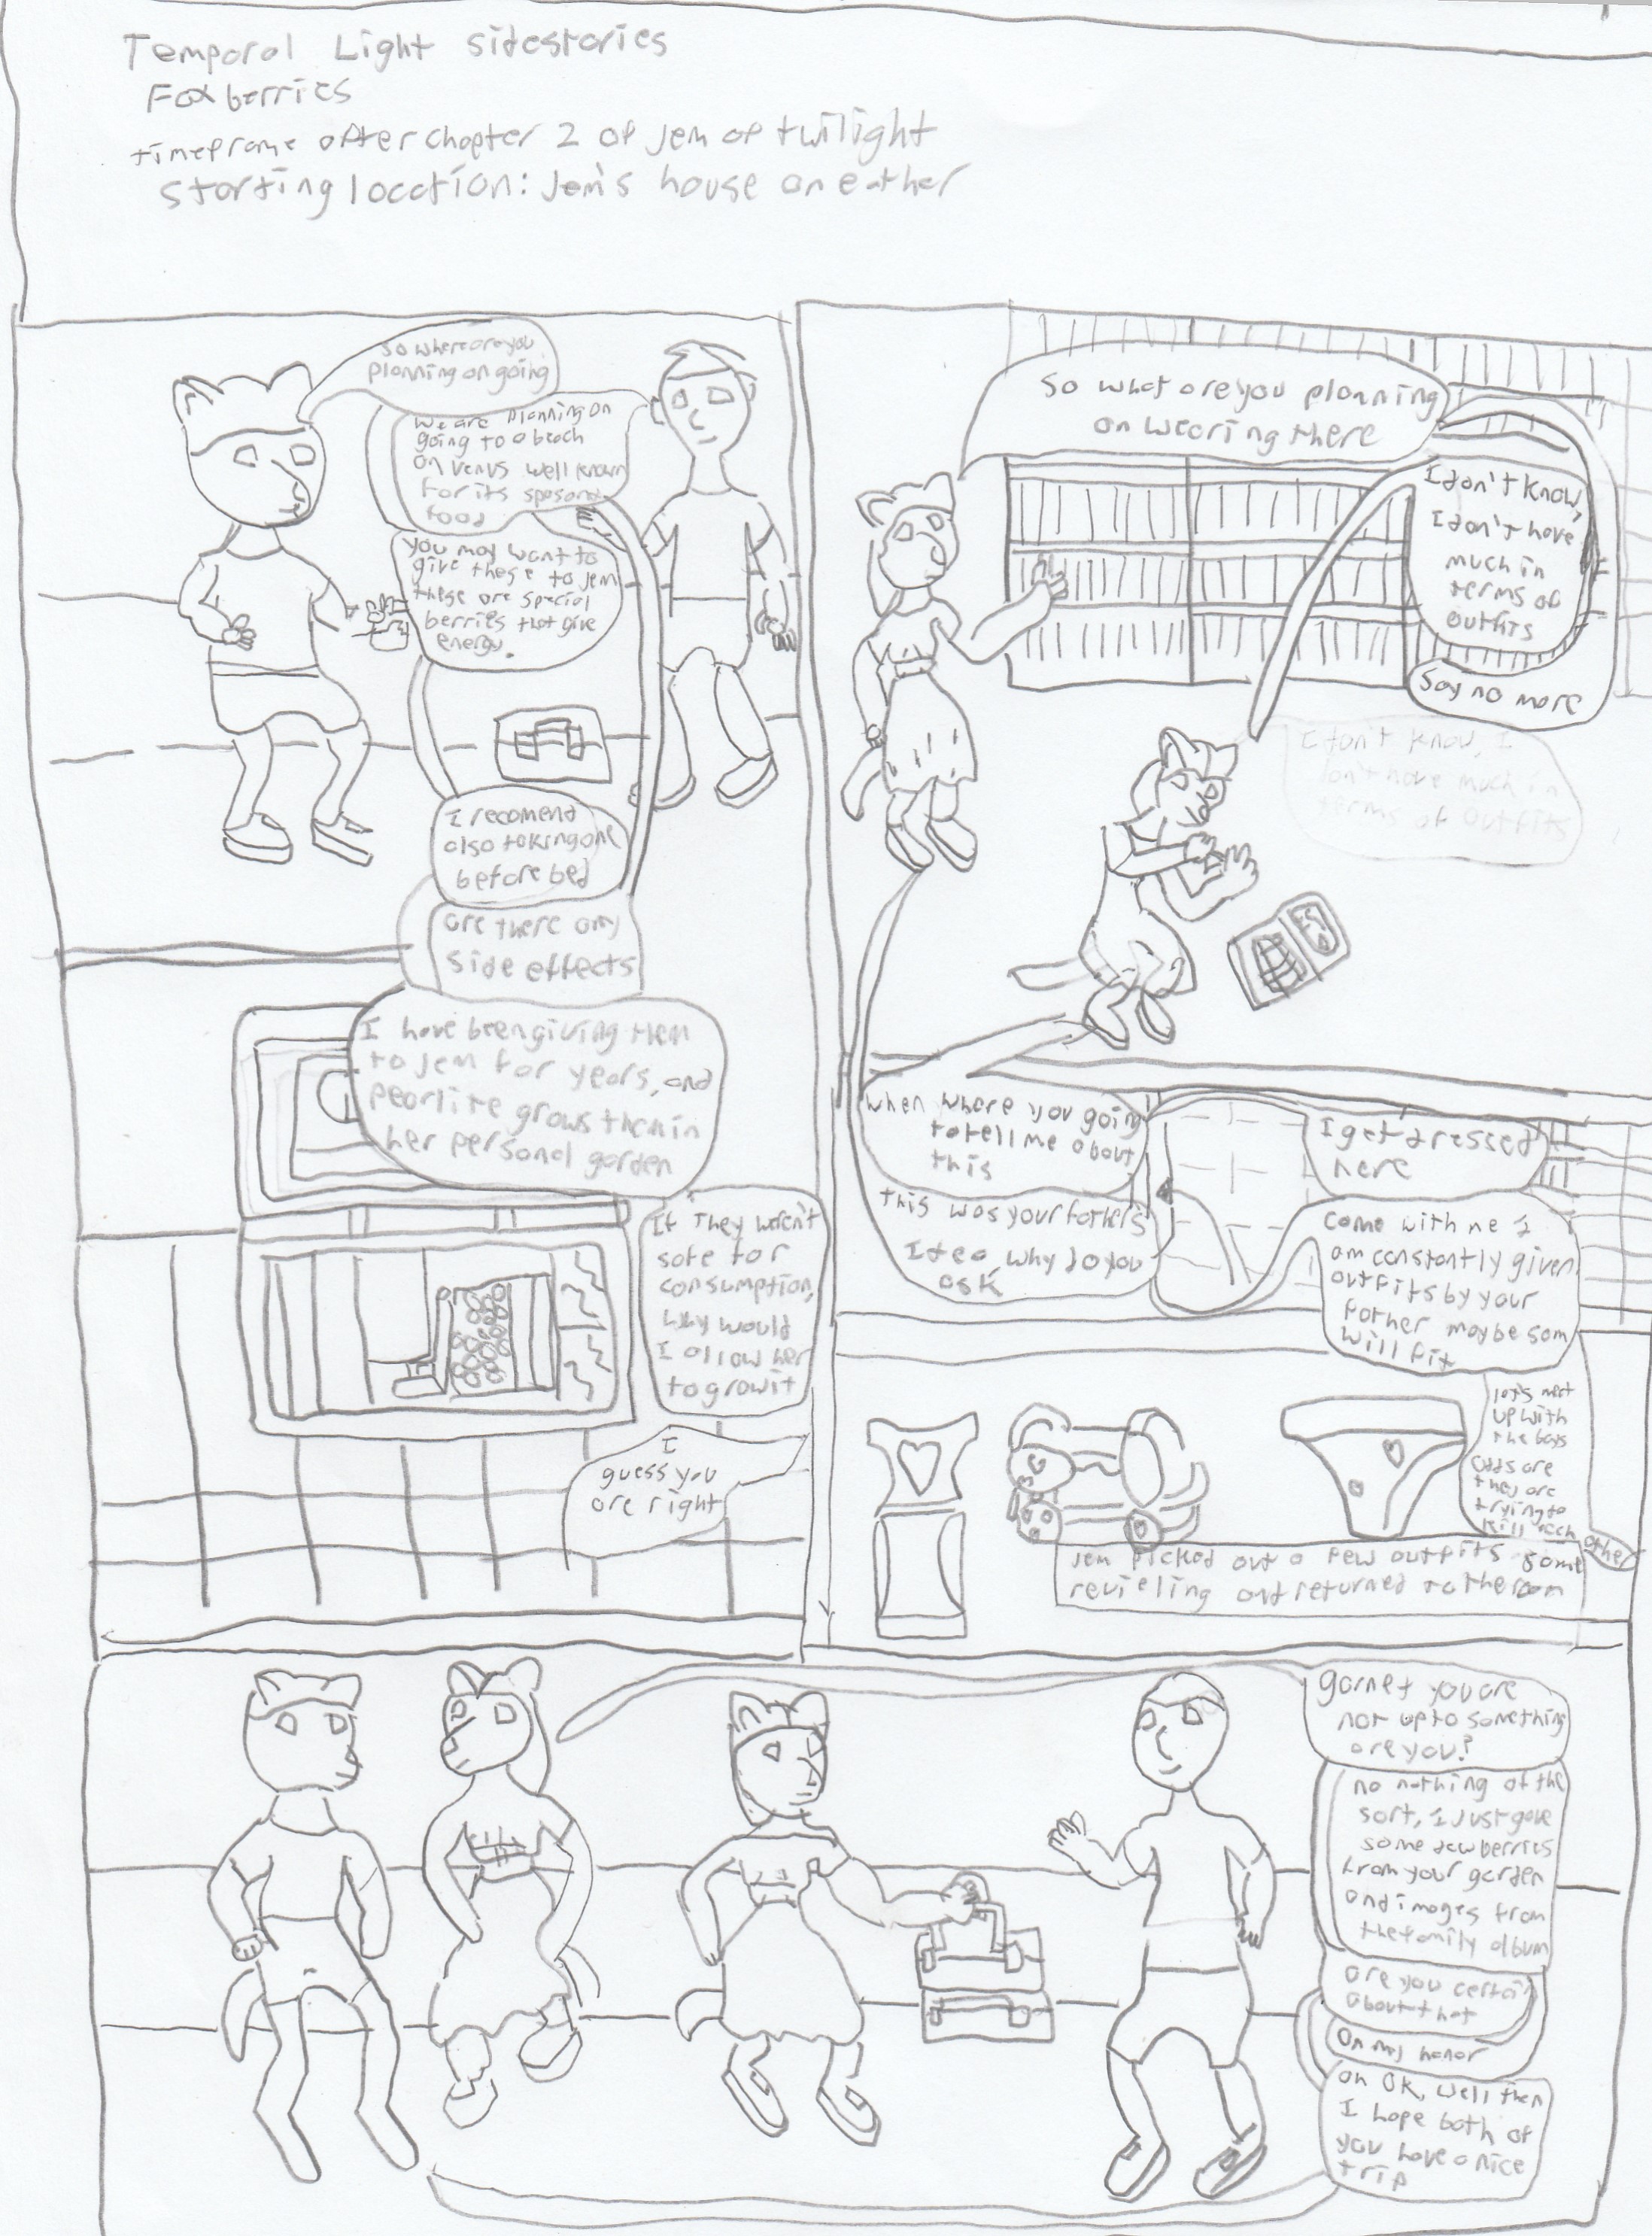 Temporal Light sidestories
Foxberries
timeframe after chapter 2 of jem of twilight
starting location: Jem's house on eather
So where are you
planning on going
We are planning on
going to a beach
on venus well known
for its spas and
food
you may want to
give these to jem
these are special
berries that give
energy.
I recomend
also taking one
before bed
are there any
side effects
I have been giving them
to Jem for years, and
pearlite grows them in
her personal garden
If they weren't
safe for
consumption,
why would
I allow her
to grow it
I
guess you
are right
So what are you planning
on wearing there
I don't know,
I don't have
much in
terms of
outfits
Say no more
I don't know, I
don't have much in
terms of outfits
when where you going
to tell me about
this
this was your father's
Idea, why do you
ask
I get dressed
here
Come with me I
am constantly given
outfits by your
father maybe som
will fit
let's meet
up with
the boys
odds are
they are
trying to
kill each
other
Jem picked out a few outfits some
revieling and returned to the room
garnet you are
not up to something
are you?
no nothing of the
sort, I just gave
some dewberries
from your garden
and images from
the family album
are you certain
about that
On my honor
oh OK, well then
I hope both of
you have a nice
trip